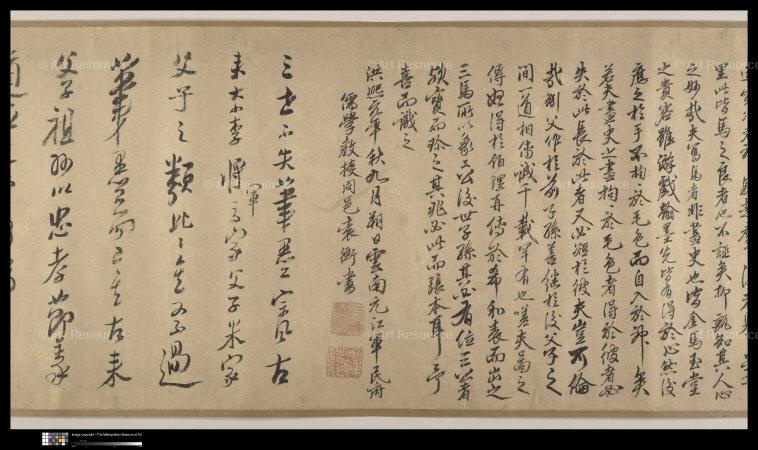 里此皆馬之良者也不矣抑孰知其人心
之妙哉夫寫馬者非畫史也皆金馬玉堂
之貴客雖游戲翰墨先皆有得於心然後
應之於手不拘於毛色而自入於神矣
若夫畫史之畫拘於毛色者得於彼者必
失於此長於此者又必短於彼夫豈可倫
哉父作於前子孫善繼於後父子之
間一道相傳誠千載罕有也嗟夫之
傳得於伯再傳於希和表而出之
三馬所以象三公後世子孫其必有位三公者
寶而珍之其兆必此而張本耳予
喜而識之
洪熙元年秋九月朔日雲南元江軍民府
儒學教授同邑袁衡書
三世不失筆墨宗風古
來李將軍家父子米家
父子之類此不過
筆墨而已古來
父子祖孫以忠孝節義
Art Resource
Image copyright | The Metropolitan Museum of Art